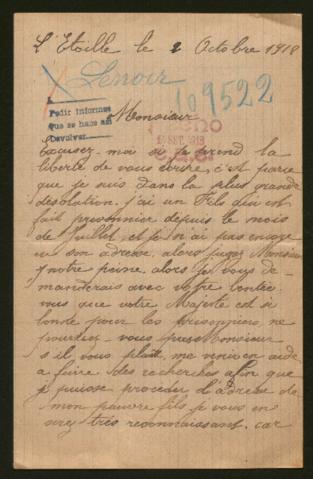 L'Etoille le 2 Octobre 1918
Lenoir
109522
Pedir informes
que se hace así
Devolver
Monsieur
SET. 1918
Excusez-moi si je prend la
liberté de vous écrire, c'est parce
que je suis dans la plus grande
désolation. j'ai un Fils qui est
fait prisonnier depuis le mois
de Juillet, et je n'ai pas encore
eu son adresse, alors jugez Monsieur
notre peine. alors je vous de-
manderais avec votre bontée
vus que votre Majesté est si
bonte pour les prisonniers ne
pourriez-vous pas Monsieur
s'il vous plait, me venir en aide
a faire des recherches afin que
je puisse proceder l'adresse de
mon pauvre fils je vous en
serez très reconnaissant. car